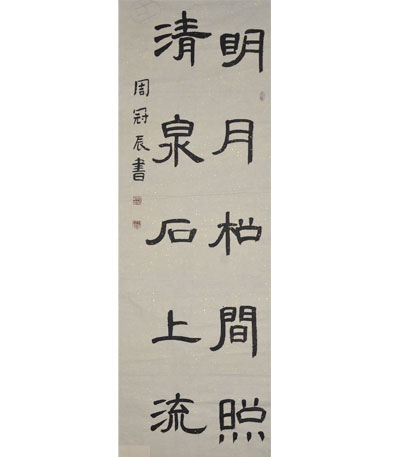 明月松間照
清泉石上流
周冠辰書